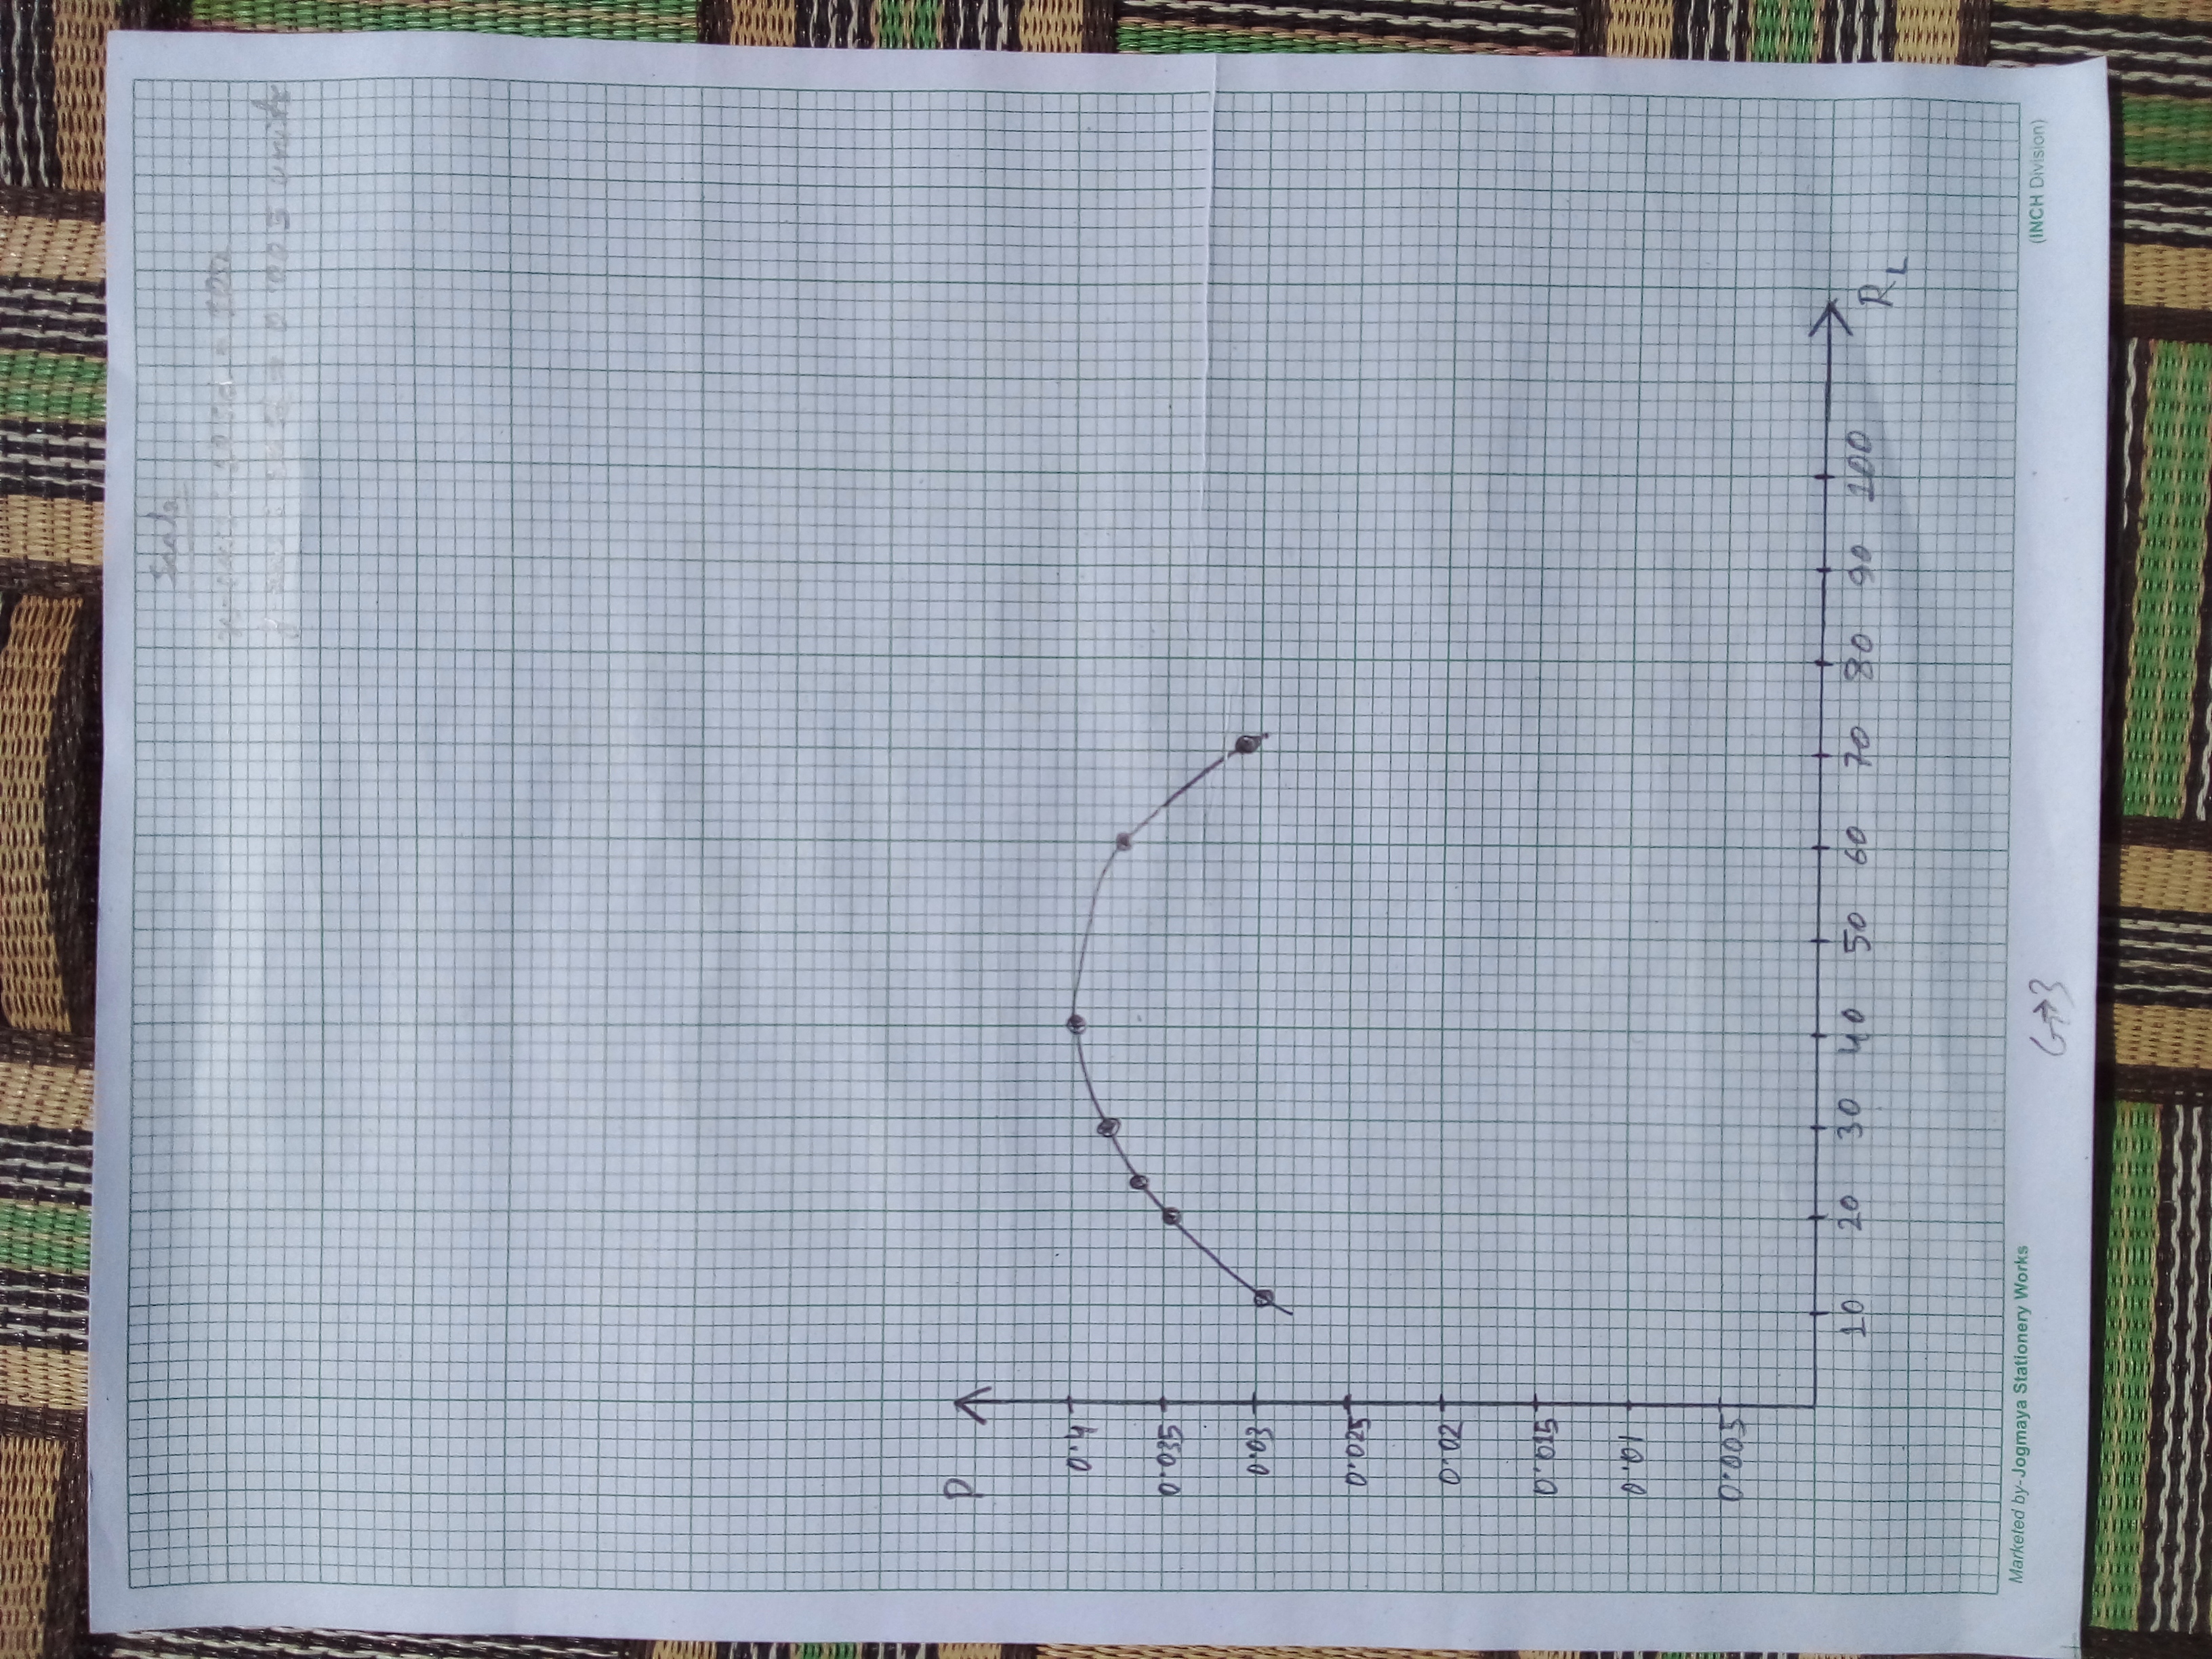 Scale
= 10Ω
0.005 units
P
0.4
0.035
0.03
0.025
0.02
0.015
0.01
0.005
10 20 30 40 50 60 70 80 90 100
R_L
Marketed by-Jogmaya Stationery Works
(INCH Division)
G→3